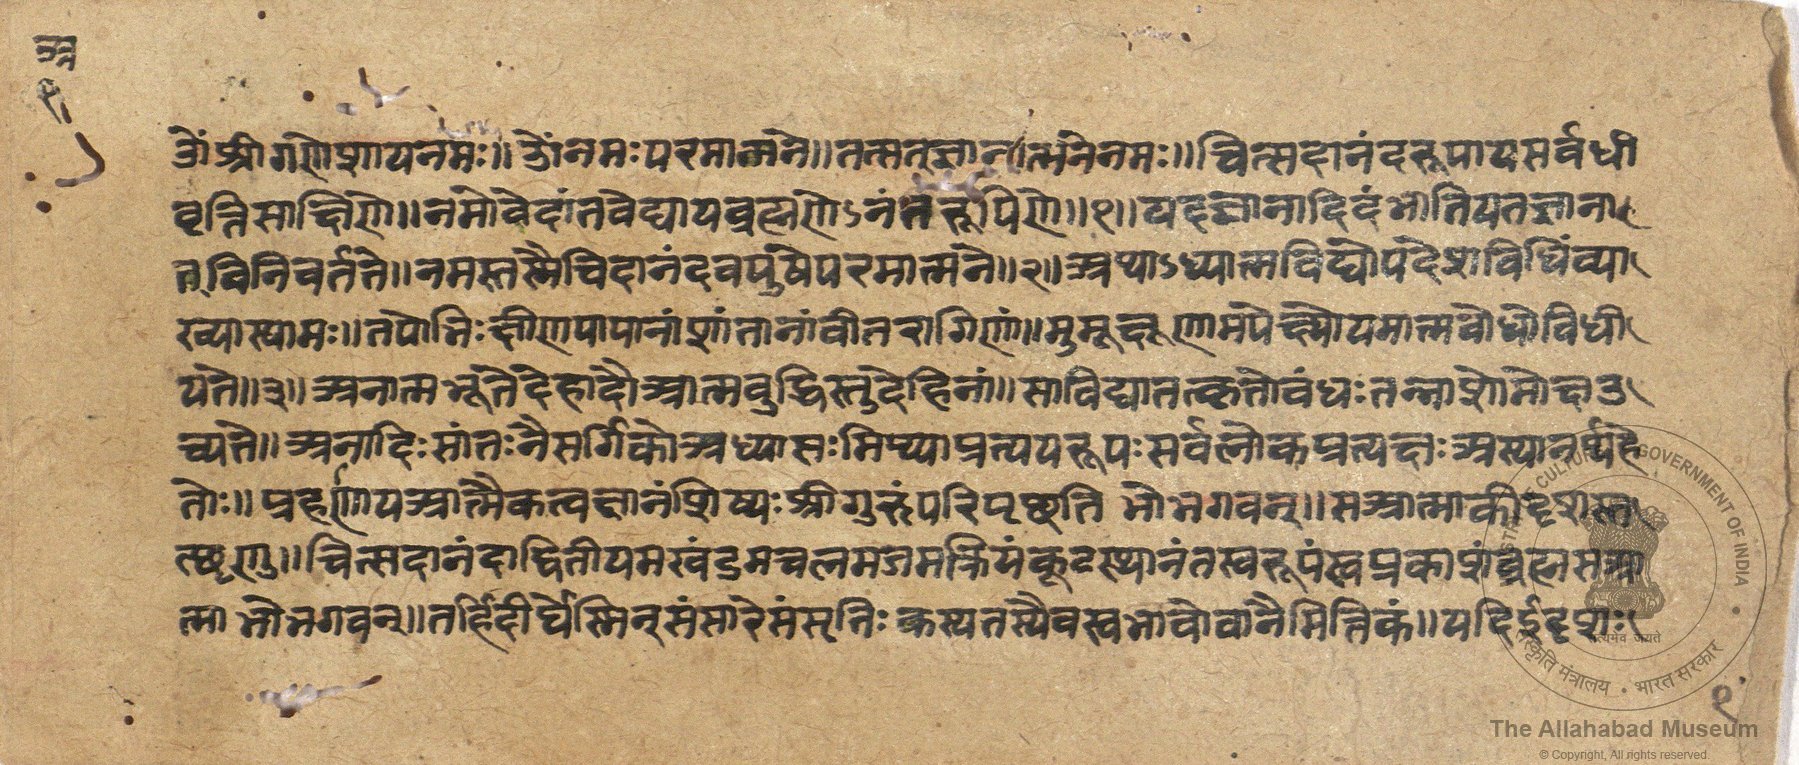 अ
१
ॐ श्रीगणेशायनमः॥ ॐनमः परमात्मने॥ तत्सत्ज्ञानात्मनेनमः॥ चित्सदानंदरूपाय सर्वधी
वृत्तिसाक्षिणे॥ नमोवेदांतवेद्यायब्रह्मणेऽनंतरूपिणे॥१॥ यदज्ञानादिदं भातियतज्ञाना
त् विनिवर्तते॥ नमस्तस्मै चिदानंदवपुषेपरमात्मने॥२॥ अथाऽध्यात्मविद्योपदेशविधिंव्या
ख्यास्यामः॥ तपोभिः क्षीणपापानां शांतानांवीतरागिणां॥ मुमूक्षूणामपेक्ष्योयमात्मबोधोविधी
यते॥३॥ अनात्मभूतेदेहादौआत्मबुद्धिस्तुदेहिनां॥ साविद्यातत्कृतोबंधः तन्नाशोमोक्षउ
च्यते॥ अनादिः सांतः नैसर्गिकोअध्यासः मिथ्याप्रत्ययरूपः सर्वलोकप्रत्यक्षः अस्यानर्थहे
तोः॥ प्रहर्णायआत्मैकत्वज्ञानंशिष्यः श्रीगुरुंपरिपृछति भोभगवन्॥ सआत्माकीदृशस्त
त्छृणु॥ चित्सदानंदाद्वितीयमखंडमचलमजमक्रियंकूटस्थानंतस्वरूपंस्वप्रकाशंब्रह्मसआ
त्मा भोभगवन्॥ तर्हिदीर्घेस्मिन् संसारेसंसृतिः कस्यतस्यैवस्वभावोवानैमित्तिकं॥ यदिईदृशः
१
STRY OF CULTURE, GOVERNMENT OF INDIA
सत्यमेव जयते
संस्कृति मंत्रालय • भारत सरकार
The Allahabad Museum
© Copyright, All rights reserved.